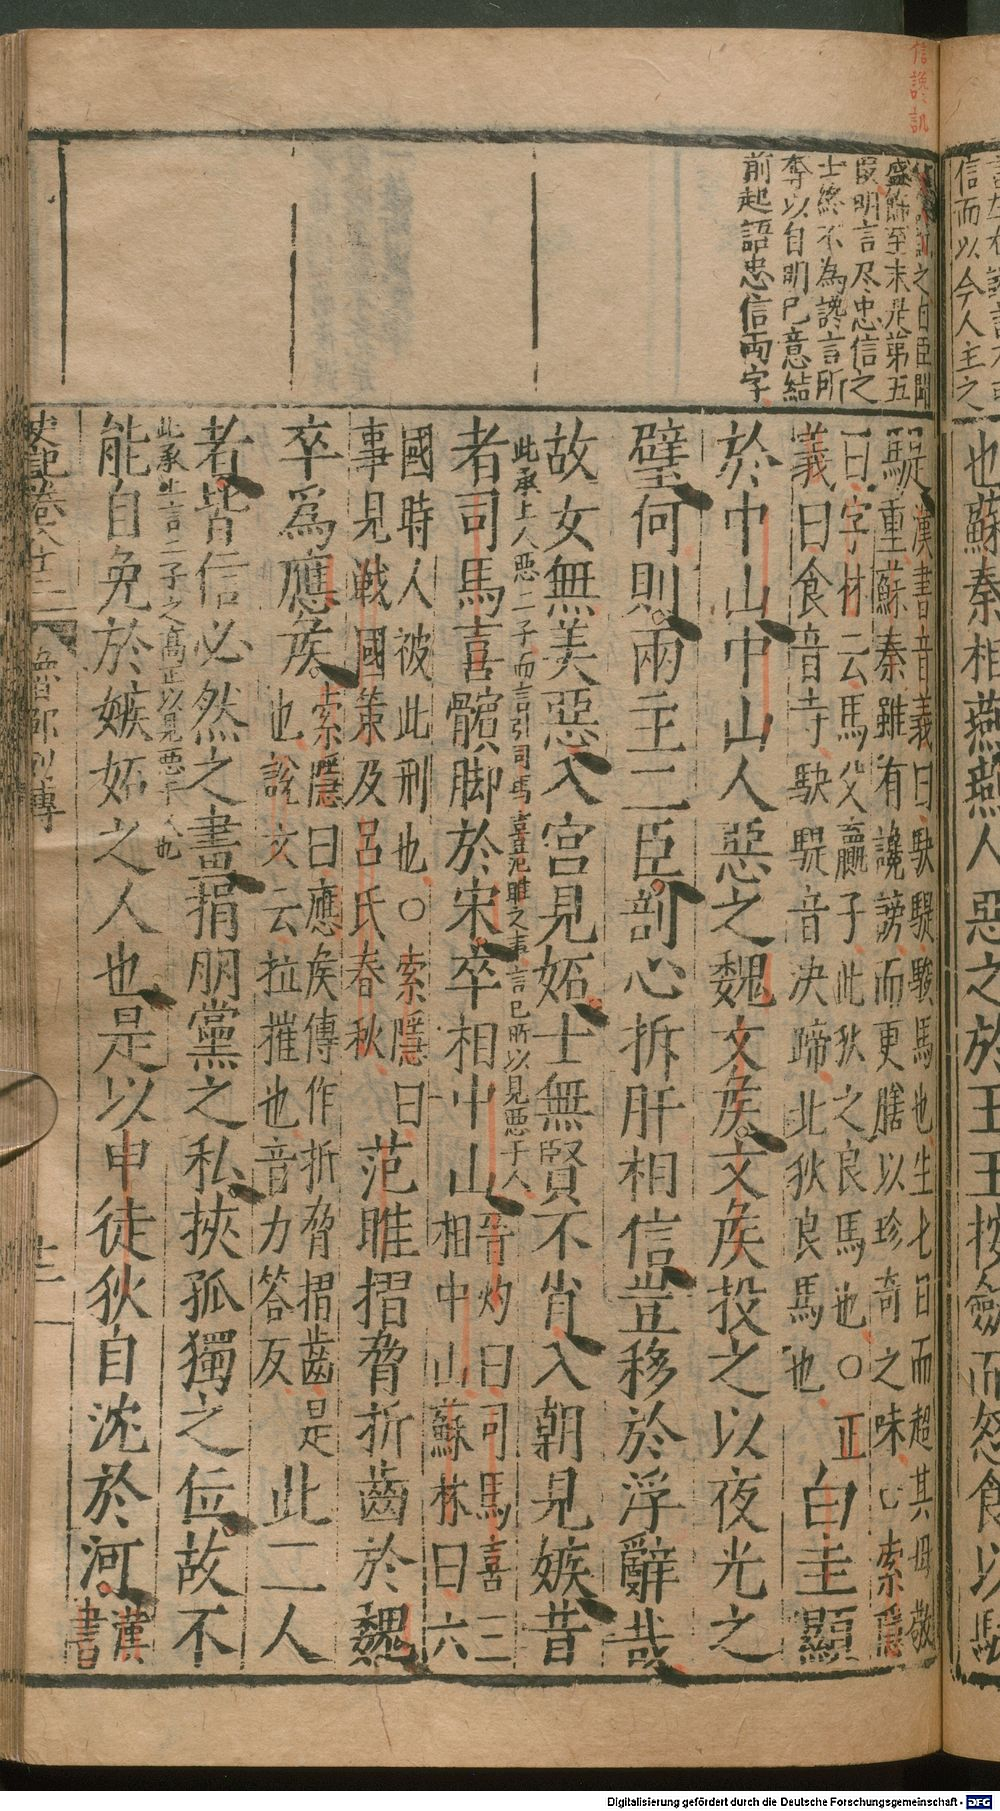 信讒訊
之曰臣聞
盛飾至末是第五
段明言尽忠信之
士終不為讒言所
奪以自明己意結
前起語忠信両字
信而以今人主之
也蘇秦相燕燕人惡之於王王按劍而怒食以駃
騠漢書音義曰駃騠駿馬也生七日而超其母敬
重蘇秦雖有讒謗而更膳以珍奇之味○索隱
曰字林云馬父贏子也北狄之良馬也○正
義曰食音寺駃騠音決蹄北狄良馬也白圭顯
於中山中山人惡之魏文矦文矦投之以夜光之
璧何則兩主二臣剖心拆肝相信豈移於浮辭哉
故女無美惡入宮見妬士無賢不肖入朝見嫉昔
此承上人惡二子而言引司馬喜范雎之事言己所以見惡于人
者司馬喜髕脚於宋卒相中山晋灼曰司馬喜三
相中山蘇林曰六
國時人被此刑也○索隱曰
事見戦國策及呂氏春秋范雎摺脅折齒於魏
卒爲應矦索隱曰應矦傳作折脅摺齒是
也說文云拉摧也音力答反此二人
者皆信必然之畫捐朋黨之私挾孤獨之位故不
此承上言二子之高正以見惡于人也
能自免於嫉妬之人也是以申徒狄自沈於河漢
書
史記卷八十三 鄒列傳
Digitalisierung gefördert durch die Deutsche Forschungsgemeinschaft - DFG